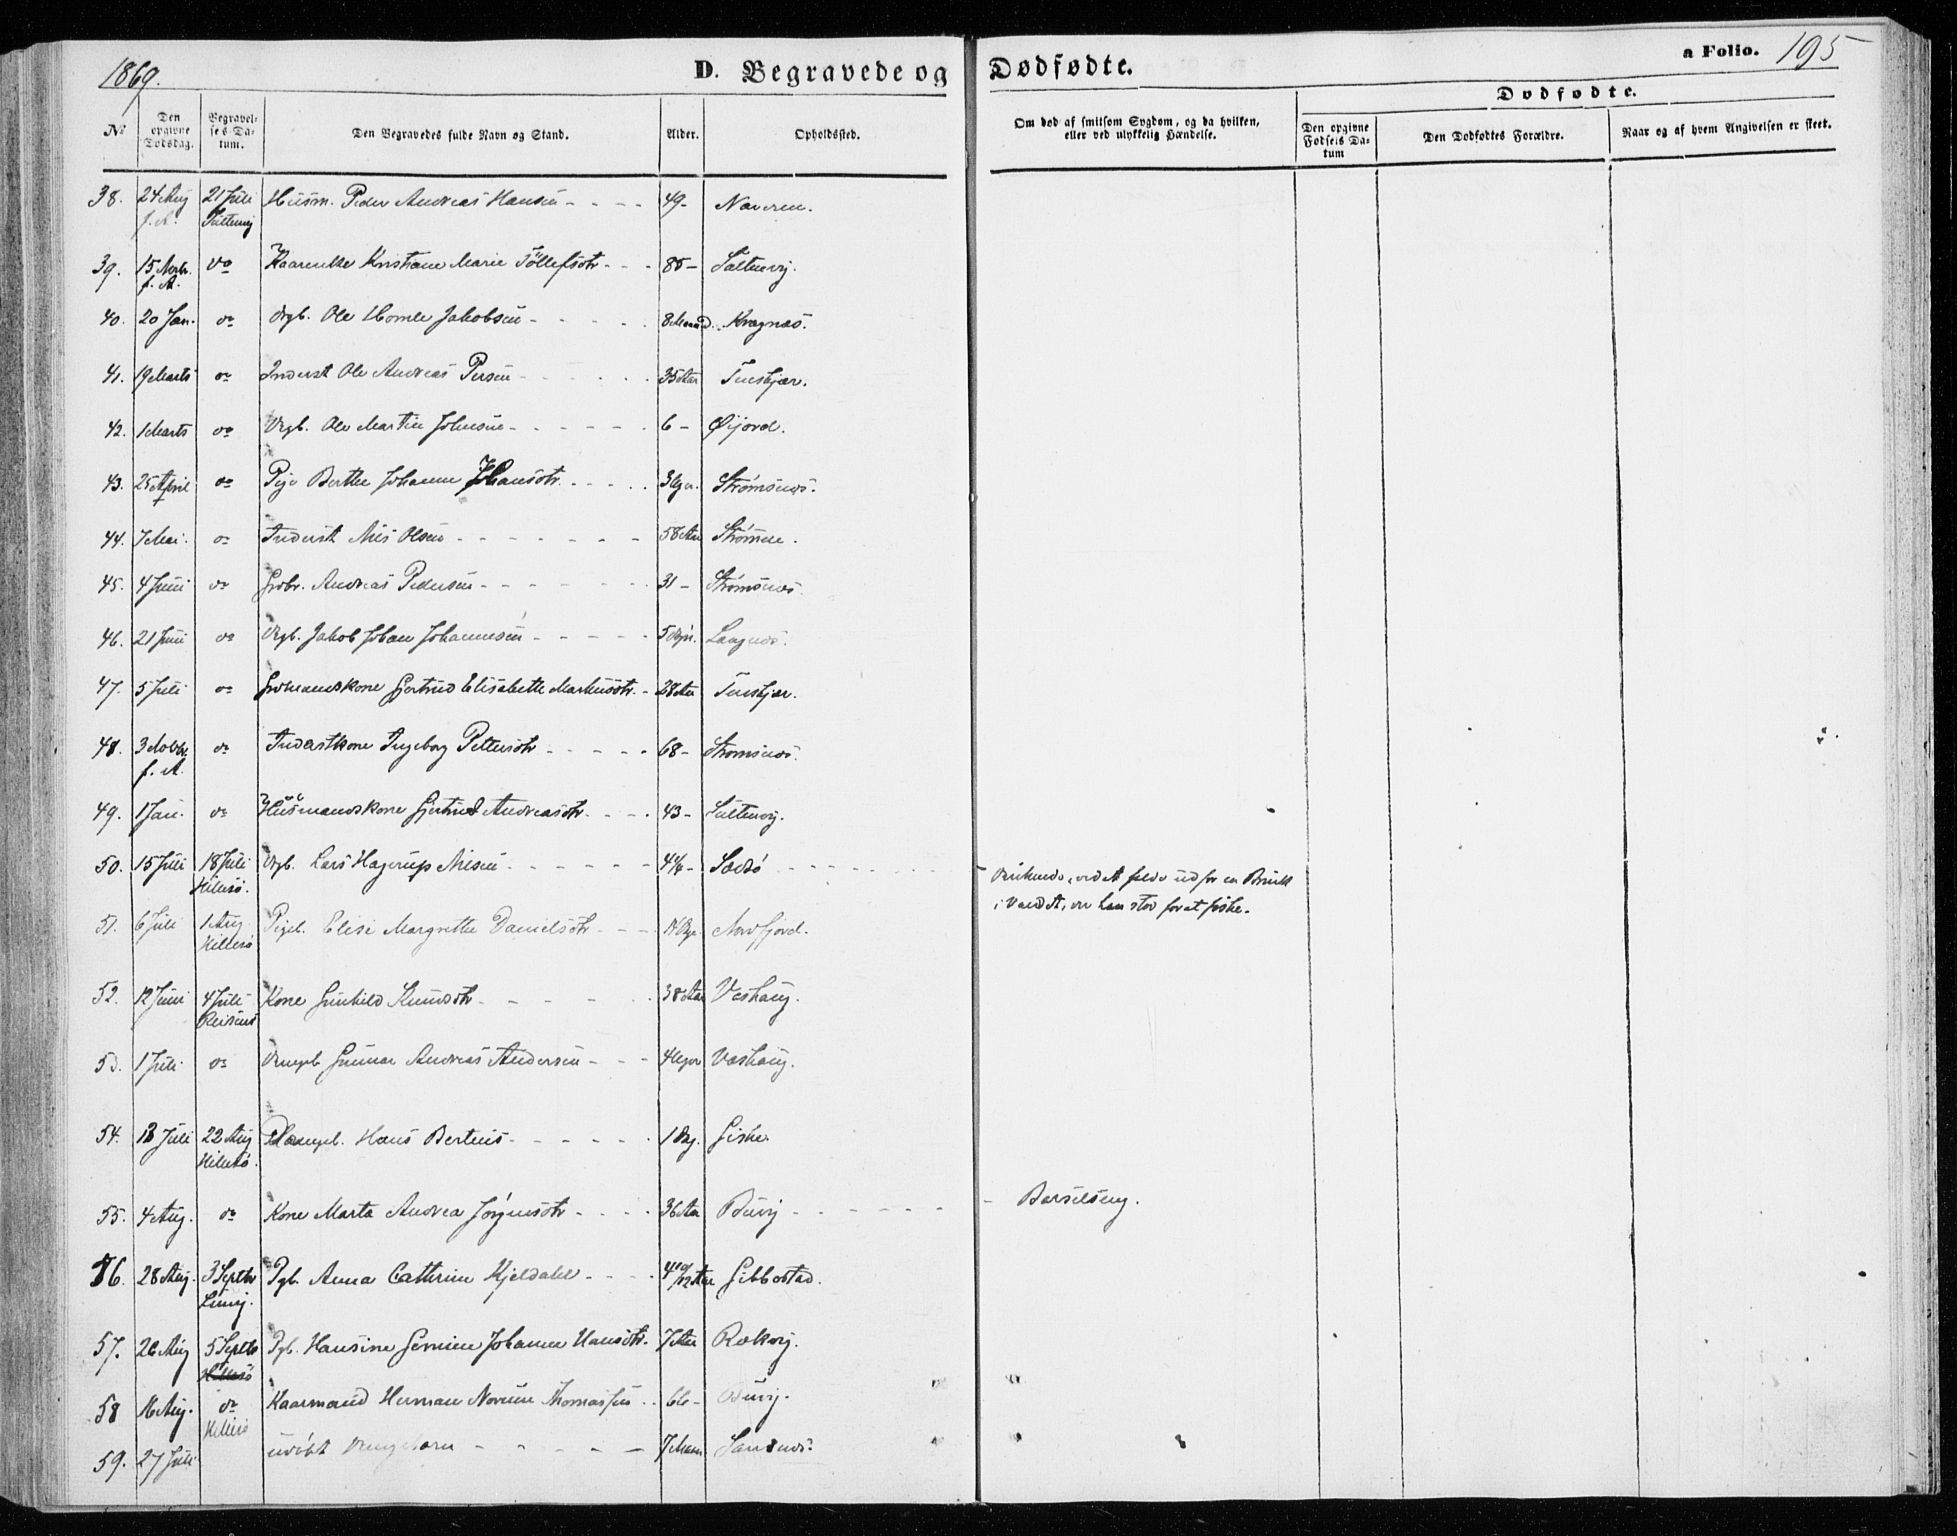 1869.
D. Begravede og Dødfødte.
a Folio. 195
Dødfødte.
No
Den opgivne Dødsdag.
Begravelses Datum.
Den Begravedes fulde Navn og Stand.
Alder.
Opholdssted.
Om død af smitsom Sygdom, og da hvilken, eller ved ulykkelig Hændelse.
Den opgivne Fødsels Datum
Den Dødfødtes Forældre.
Naar og af hvem Angivelsen er skeet.
38. 24 Aug f. A. 21 Juli Husm. Peder Andreas Hansen - - - - 49 - Naveren.
39. 15 Novbr. f. A. do Kaarenke Kristiane Marie Töllefsdtr - - - 85 -
40. 20 Jan. do Drgb. Ole Homle Jakobsen - - - - Kragnæs.
41. 19 Marts do Inderst Ole Andreas Persen - - - - 35 Aar Tunskjær.
42. 1 Marts do Drgb. Ole Martin Johnsen - - - - - 6 - Øijord.
43. 25 April do Pige Berthe Johanne Johansdtr. - - - - 3 Uger. Strømsnæs.
44. 7 Mai. do Inderst Nils Olsen - - - - - - 58 Aar Strømme.
45. 4 Juni do Grbr. Andreas Pedersen - - - - - 31 - Strømsnæs
46. 21 Juni do Drgb. Jakob Johan Johannesen - - - - - Langnæs.
47. 5 Juli do Grdmandskone Gjertrud Elisabeth Markusdtr. - 28 Aar Tunskjær.
48. 3 Novbr. f. A. do Inderstkone Ingeborg Pettersdtr - - - - - 68 - Strømsnæs.
49. 1 Jan. do Husmandskone Gjertrud Andreasdtr. - - - 43 -
50. 15 Juli 18 Juli Hillesö. Drgb. Lars Hagerup Nilsen - - - - - Sædö - - - -
Druknede, ved at falde ud for en Brink
i Vandet, der han stod for at fiske.
51. 6 Juli 1 Aug Hillesö Pigeb. Elise Margrethe Danielsdtr - - - Nordfjord.
52. 12 Juni 4 Juli Kone Gunhild Knudsdtr - - - - 38 Aar Veshaug.
53. 1 Juli do Drengeb. Gunnar Andreas Andersen - - - 4 Uger Væshaug.
54. 13 Juli 22 Aug Hillesö. Hans Bertius - - - - - 1 Dg. Giske.
55. 4 Aug. do Kone Marta Andrea Jörgensdtr - - - - 36 Aar Buvig - - - - - - Barselseng.
56. 28 Aug. 3 Septbr Lenvig. Pgb. Anna Cathrine Kjeldahl - - - - 4 10/12 Aar Gibbostad.
57. 26 Aug 5 Septb Hillesö Pgb. Hansine Johanne Hansdtr. 7 Aar Rakvig.
58 16 Aug. do Hillesö Kaarmand Herman Thomassen - - 66 - Buvig.
59. 27 Juli udöbt Drengebarn - - - - - 7 Sandnæs.